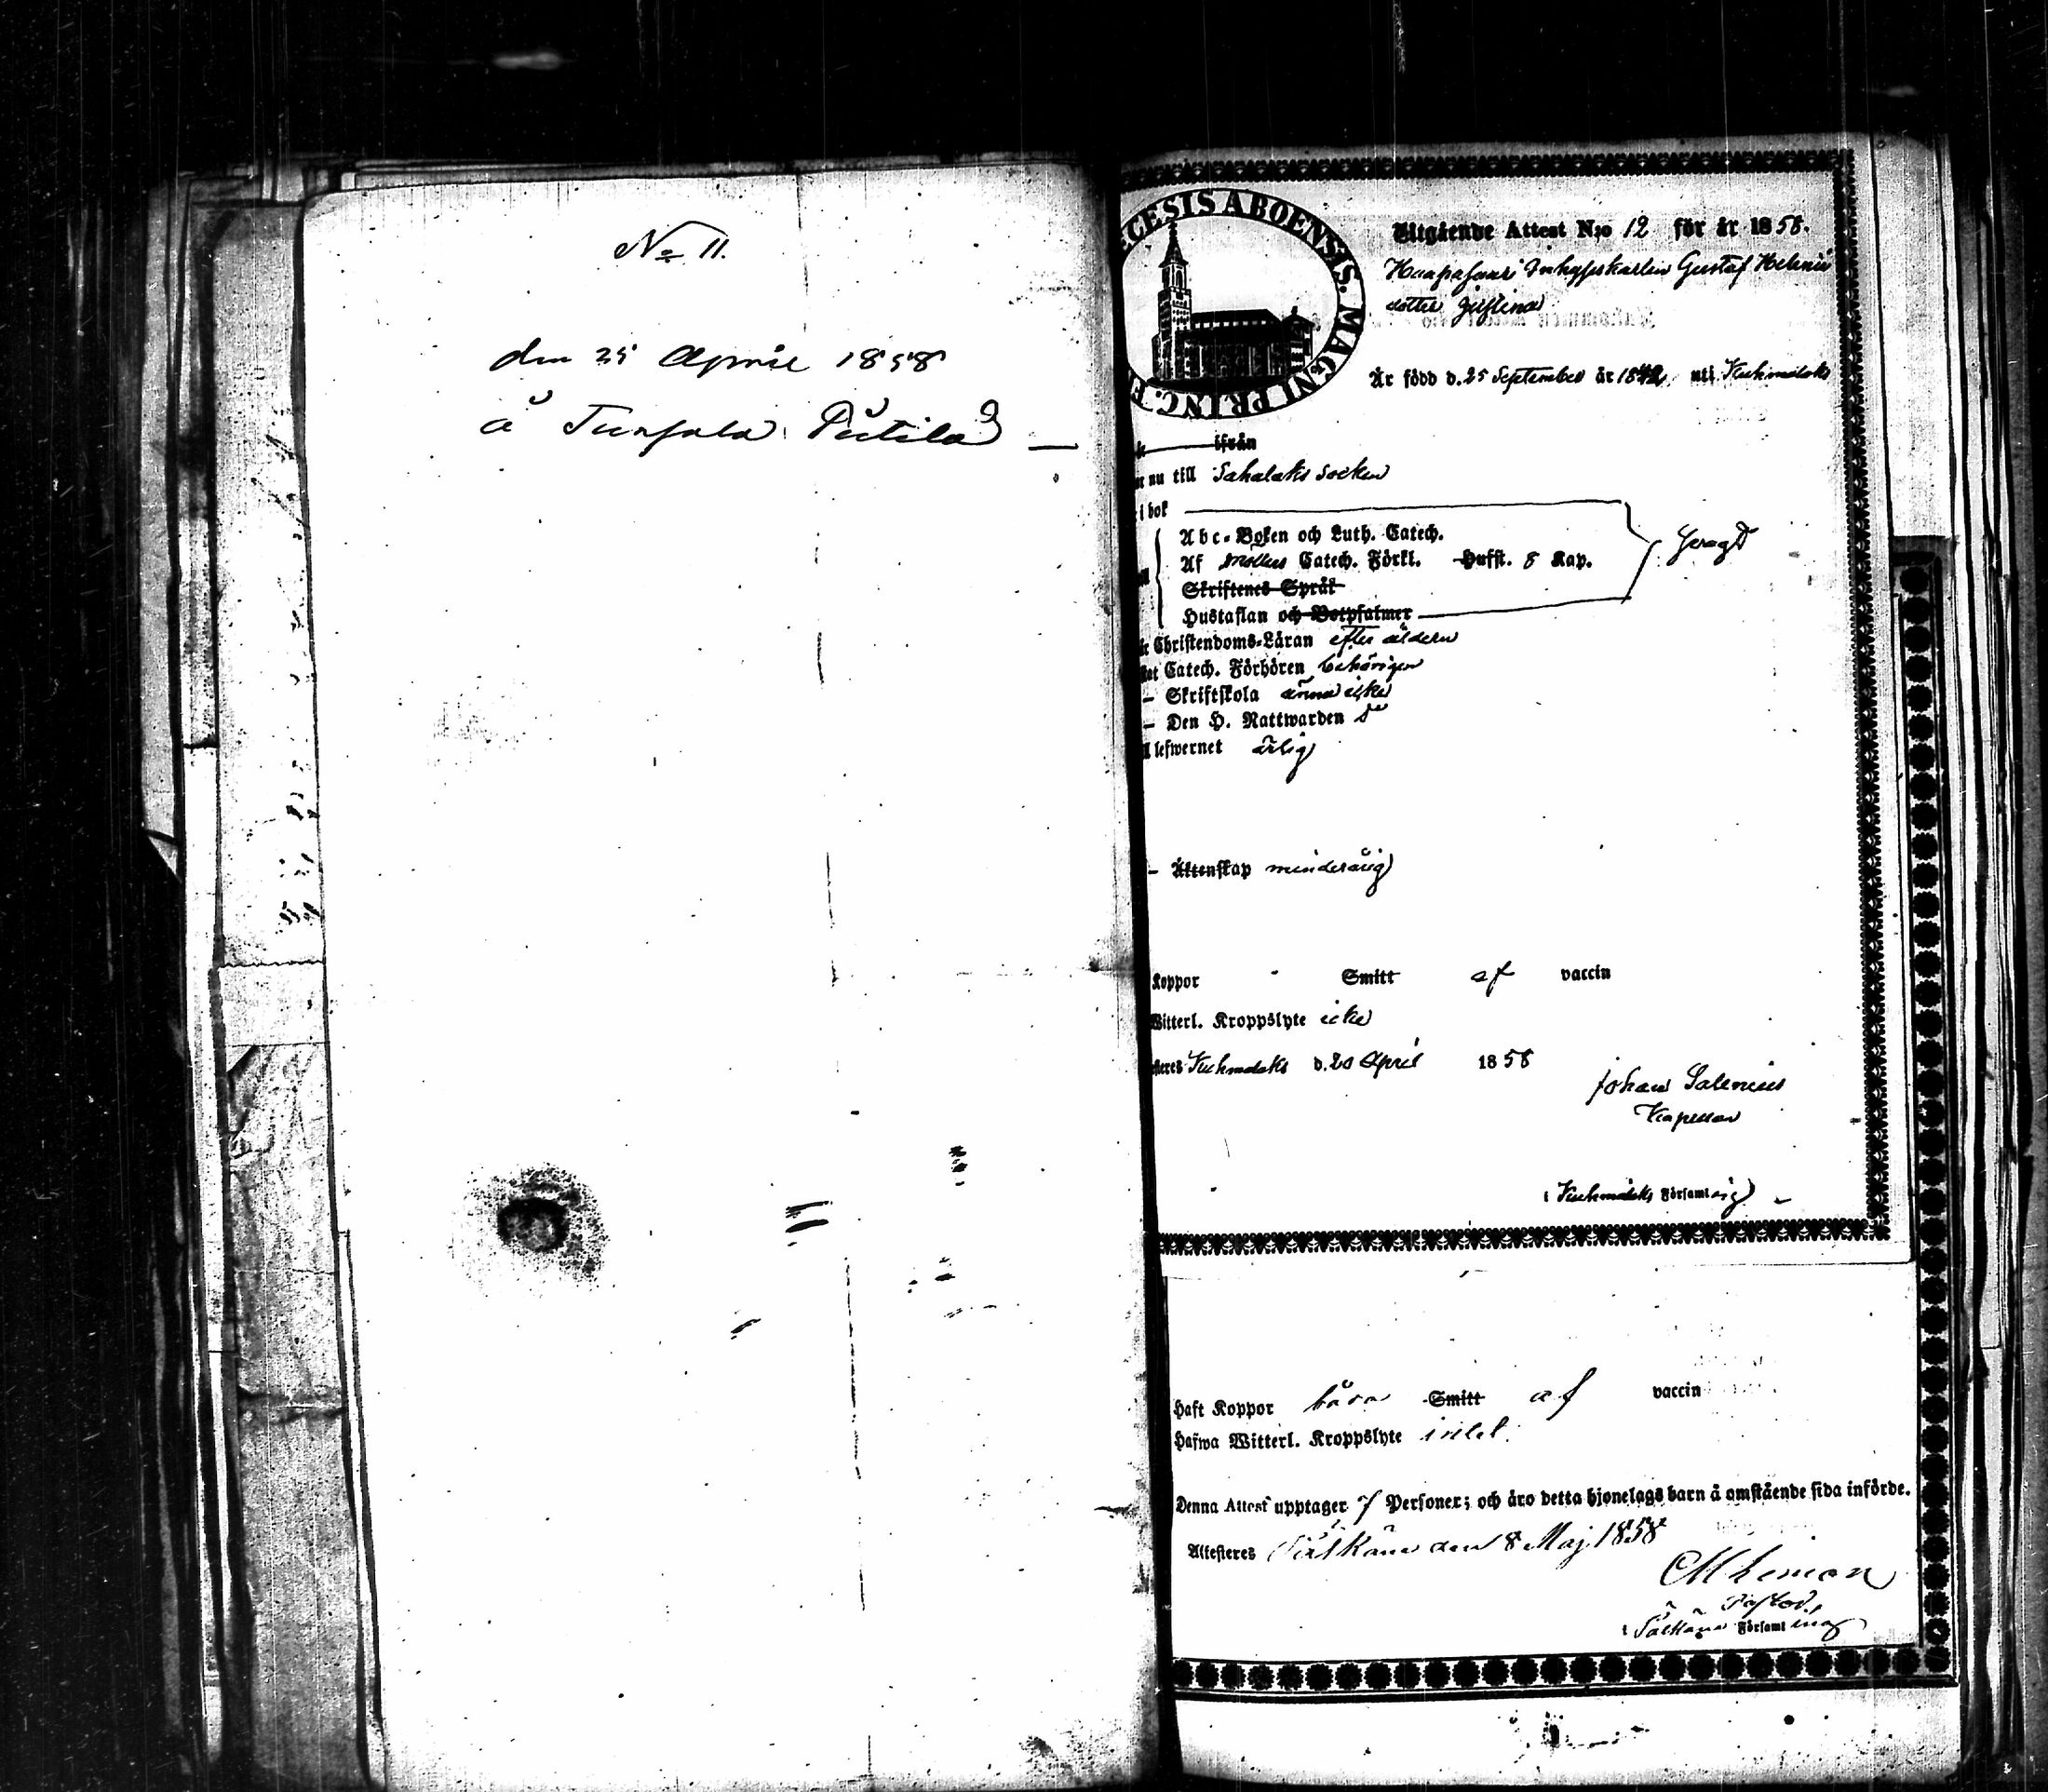 No 11.
den 25 April 1858
å Tunsala Putila
ECESIS ABOENSIS. MAGNI PRINC. F
Utgående Attest N:o 12 för år 1858.
Haapasaari Inhyseskarlen Gustaf Helenii
dotter Justina
Är född d. 25 September år 1842 uti Kuhmalaks
ifrån
nu till Sahalaks Socken
i bok
Abc-Boken och Luth. Catech.
Af Möllers Catech. Förkl. Husst. 8 Kap.
Skriftenes Språk
Hustaflan och Botpsalmer
Christendoms-Läran efter åldern
Catech. Förhören behörigen
– Skriftskola ännu icke
– Den H. Nattwarden do
lefwernet ärlig
– Äktenskap minderårig
Koppor Smitt af vaccin
Witterl. Kroppslyte icke
Kuhmalaks d. 20 April 1858
Johan Salenius
Kapellan
i Kuhmalaks Församling
Haft Koppor bara Smitt af vaccin
Hafwa Witterl. Kroppslyte intet.
Denna Attest upptager 7 Personer; och äro detta hjonelags barn å omstående sida införde.
Attesteres Pälkäne den 8 Maj 1858
Pastor
i Pälkäne Församling